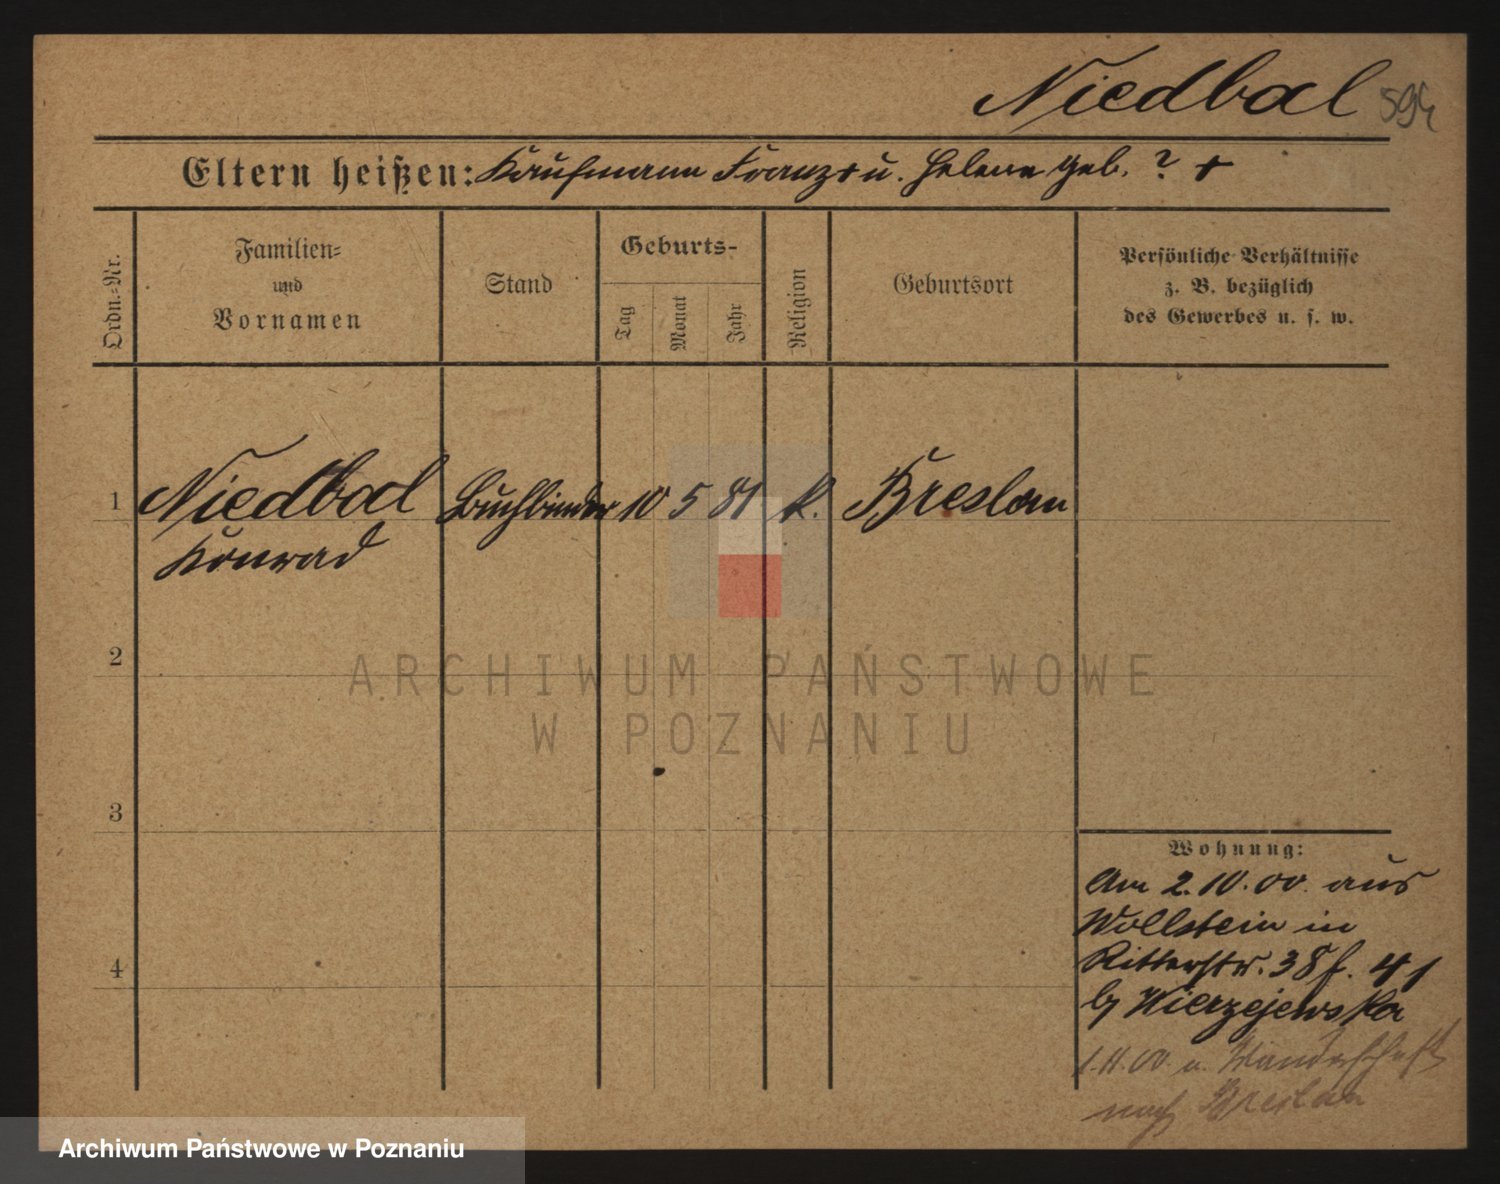 Niedbal
Eltern heißen: Kaufmann Franz + u. Helene geb. ? +
Ordn.-Nr.
Familien-
und
Vornamen
Stand
Geburts-
Tag
Monat
Jahr
Religion
Geburtsort
Persönliche Verhältnisse
z. B. bezüglich
des Gewerbes u. s. w.
1 Niedbal Buchbinder 10 5 81 k. Breslau
Konrad
2
ARCHIWUM PAŃSTWOWE
W POZNANIU
3
Wohnung:
Am 2.10.00. aus
Wollstein in
4
Ritterstr. 38 f. 41
by Wierzejewska
1.11.00. a. Wanderschaft
nach Breslau
Archiwum Państwowe w Poznaniu